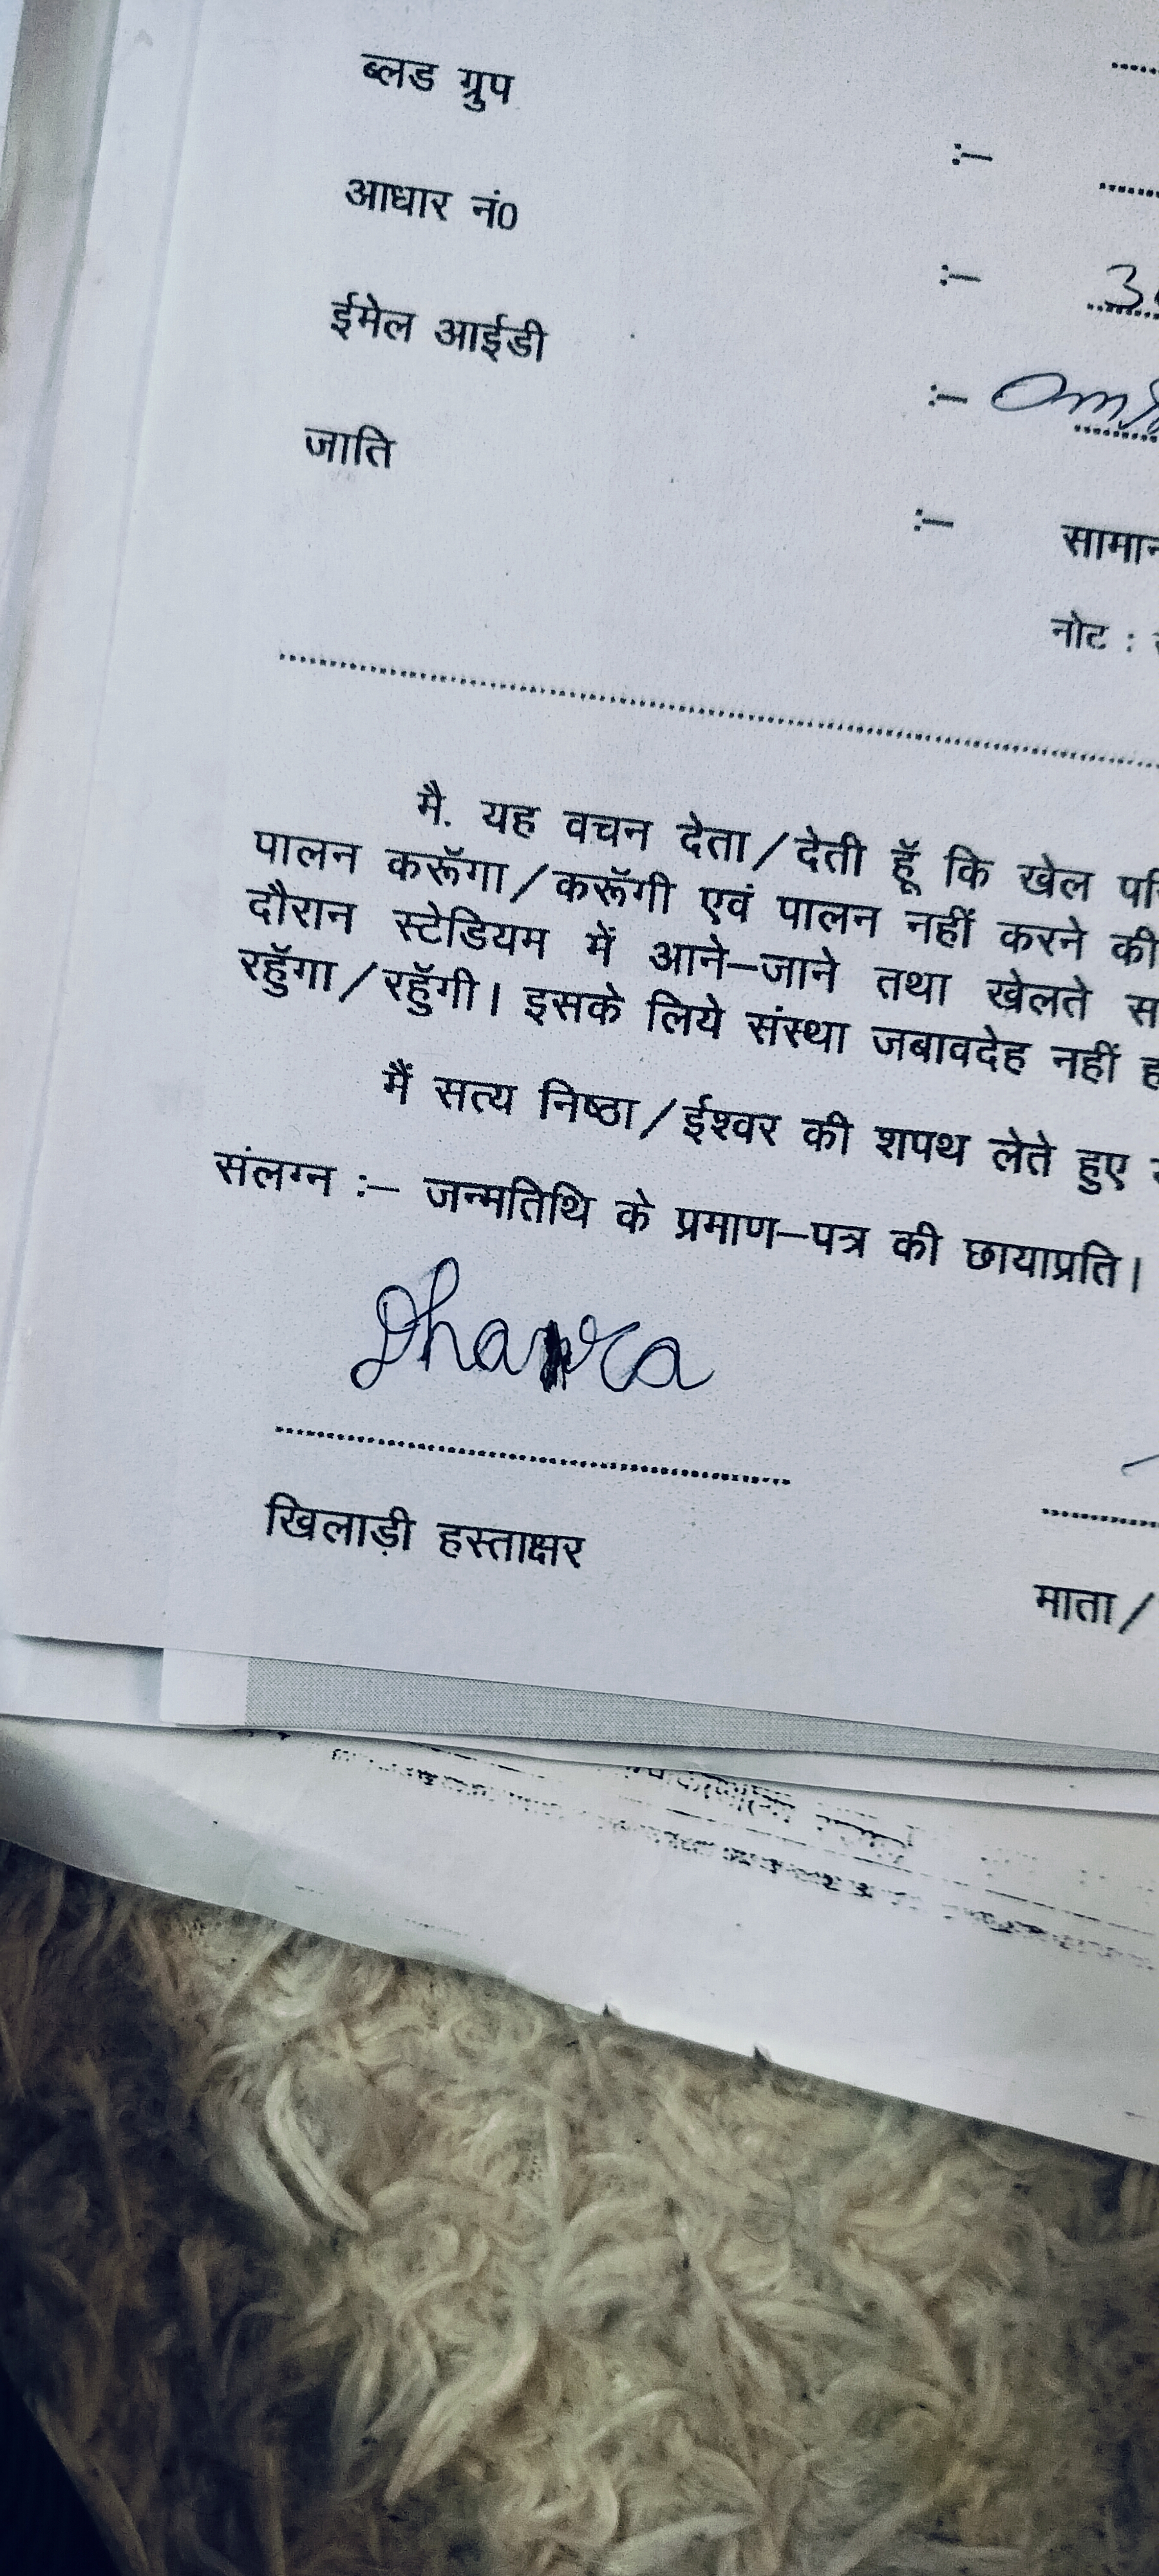 ब्लड ग्रुप :–
आधार नं0 :– 3
ईमेल आईडी :–
जाति :– सामान
नोट :
मै. यह वचन देता/देती हूॅ कि खेल परि
पालन करूॅगा/करूॅगी एवं पालन नहीं करने की
दौरान स्टेडियम में आने–जाने तथा खेलते स
रहुॅगा/रहुॅगी। इसके लिये संस्था जबावदेह नहीं ह
मैं सत्य निष्ठा/ईश्वर की शपथ लेते हुए
संलग्न :– जन्मतिथि के प्रमाण–पत्र की छायाप्रति।
खिलाड़ी हस्ताक्षर
माता/